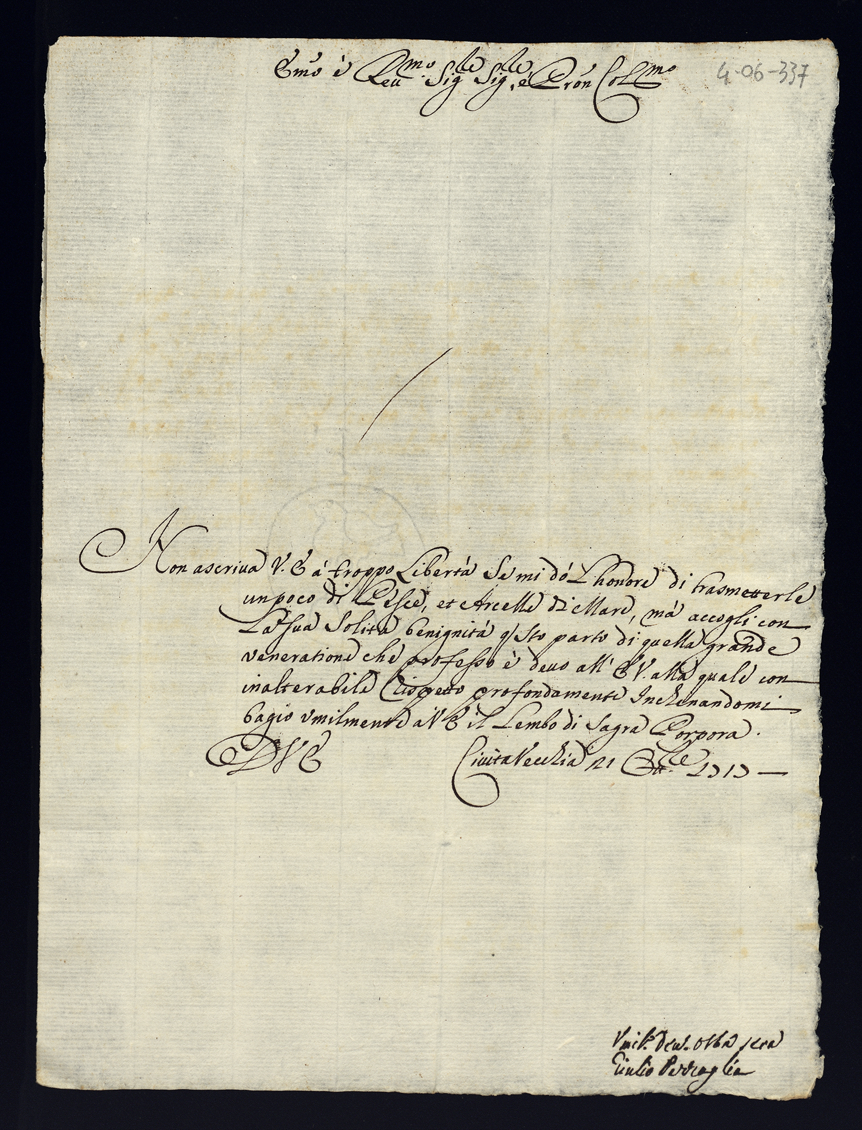 Emo è Reu.mo Sig.le Sig.le, è Pron Col.mo
4-06-337
Non ascriua V. E à troppo Libertà Se mi dò L'honore di trasmetterle
un poco di Pesce, et Arcelle di Mare, mà accogli con
La sua Solita benignità q'sto parto di quella grande
veneratione che professo è deuo all' E V. alla quale con
inalterabile Rispetto profondamente Inchinandomi
bagio vmilmente a V E il Lembo di Sagra Porpora.
D V E Ciuita Vecchia 21 1717
Vmil. Deu. Obb
Giulio